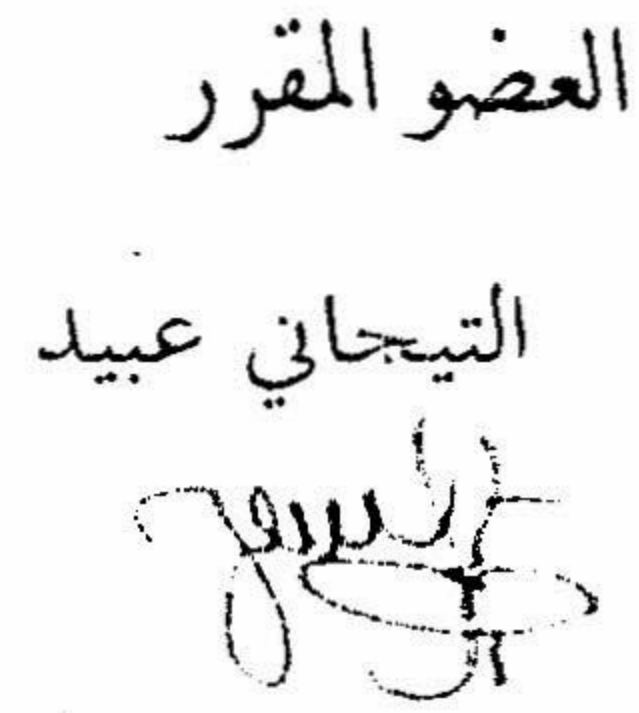 العضو المقرر
التيجاني عبيد